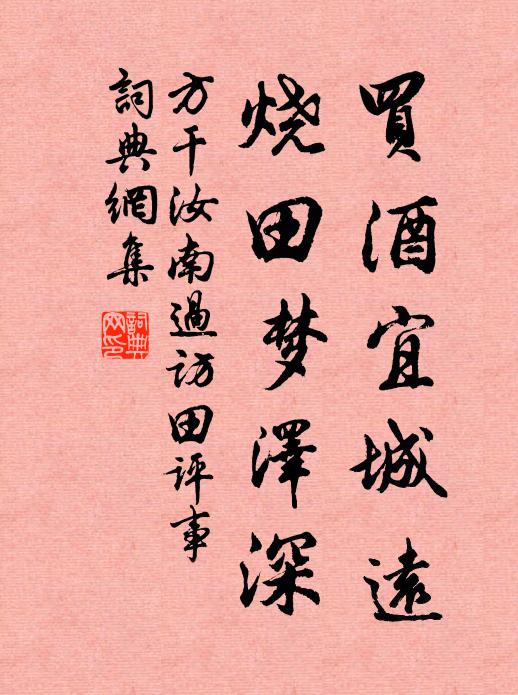 買酒宜城遠
烧田梦澤深
方干汝南過访田评事
詞典網集
詞典網印